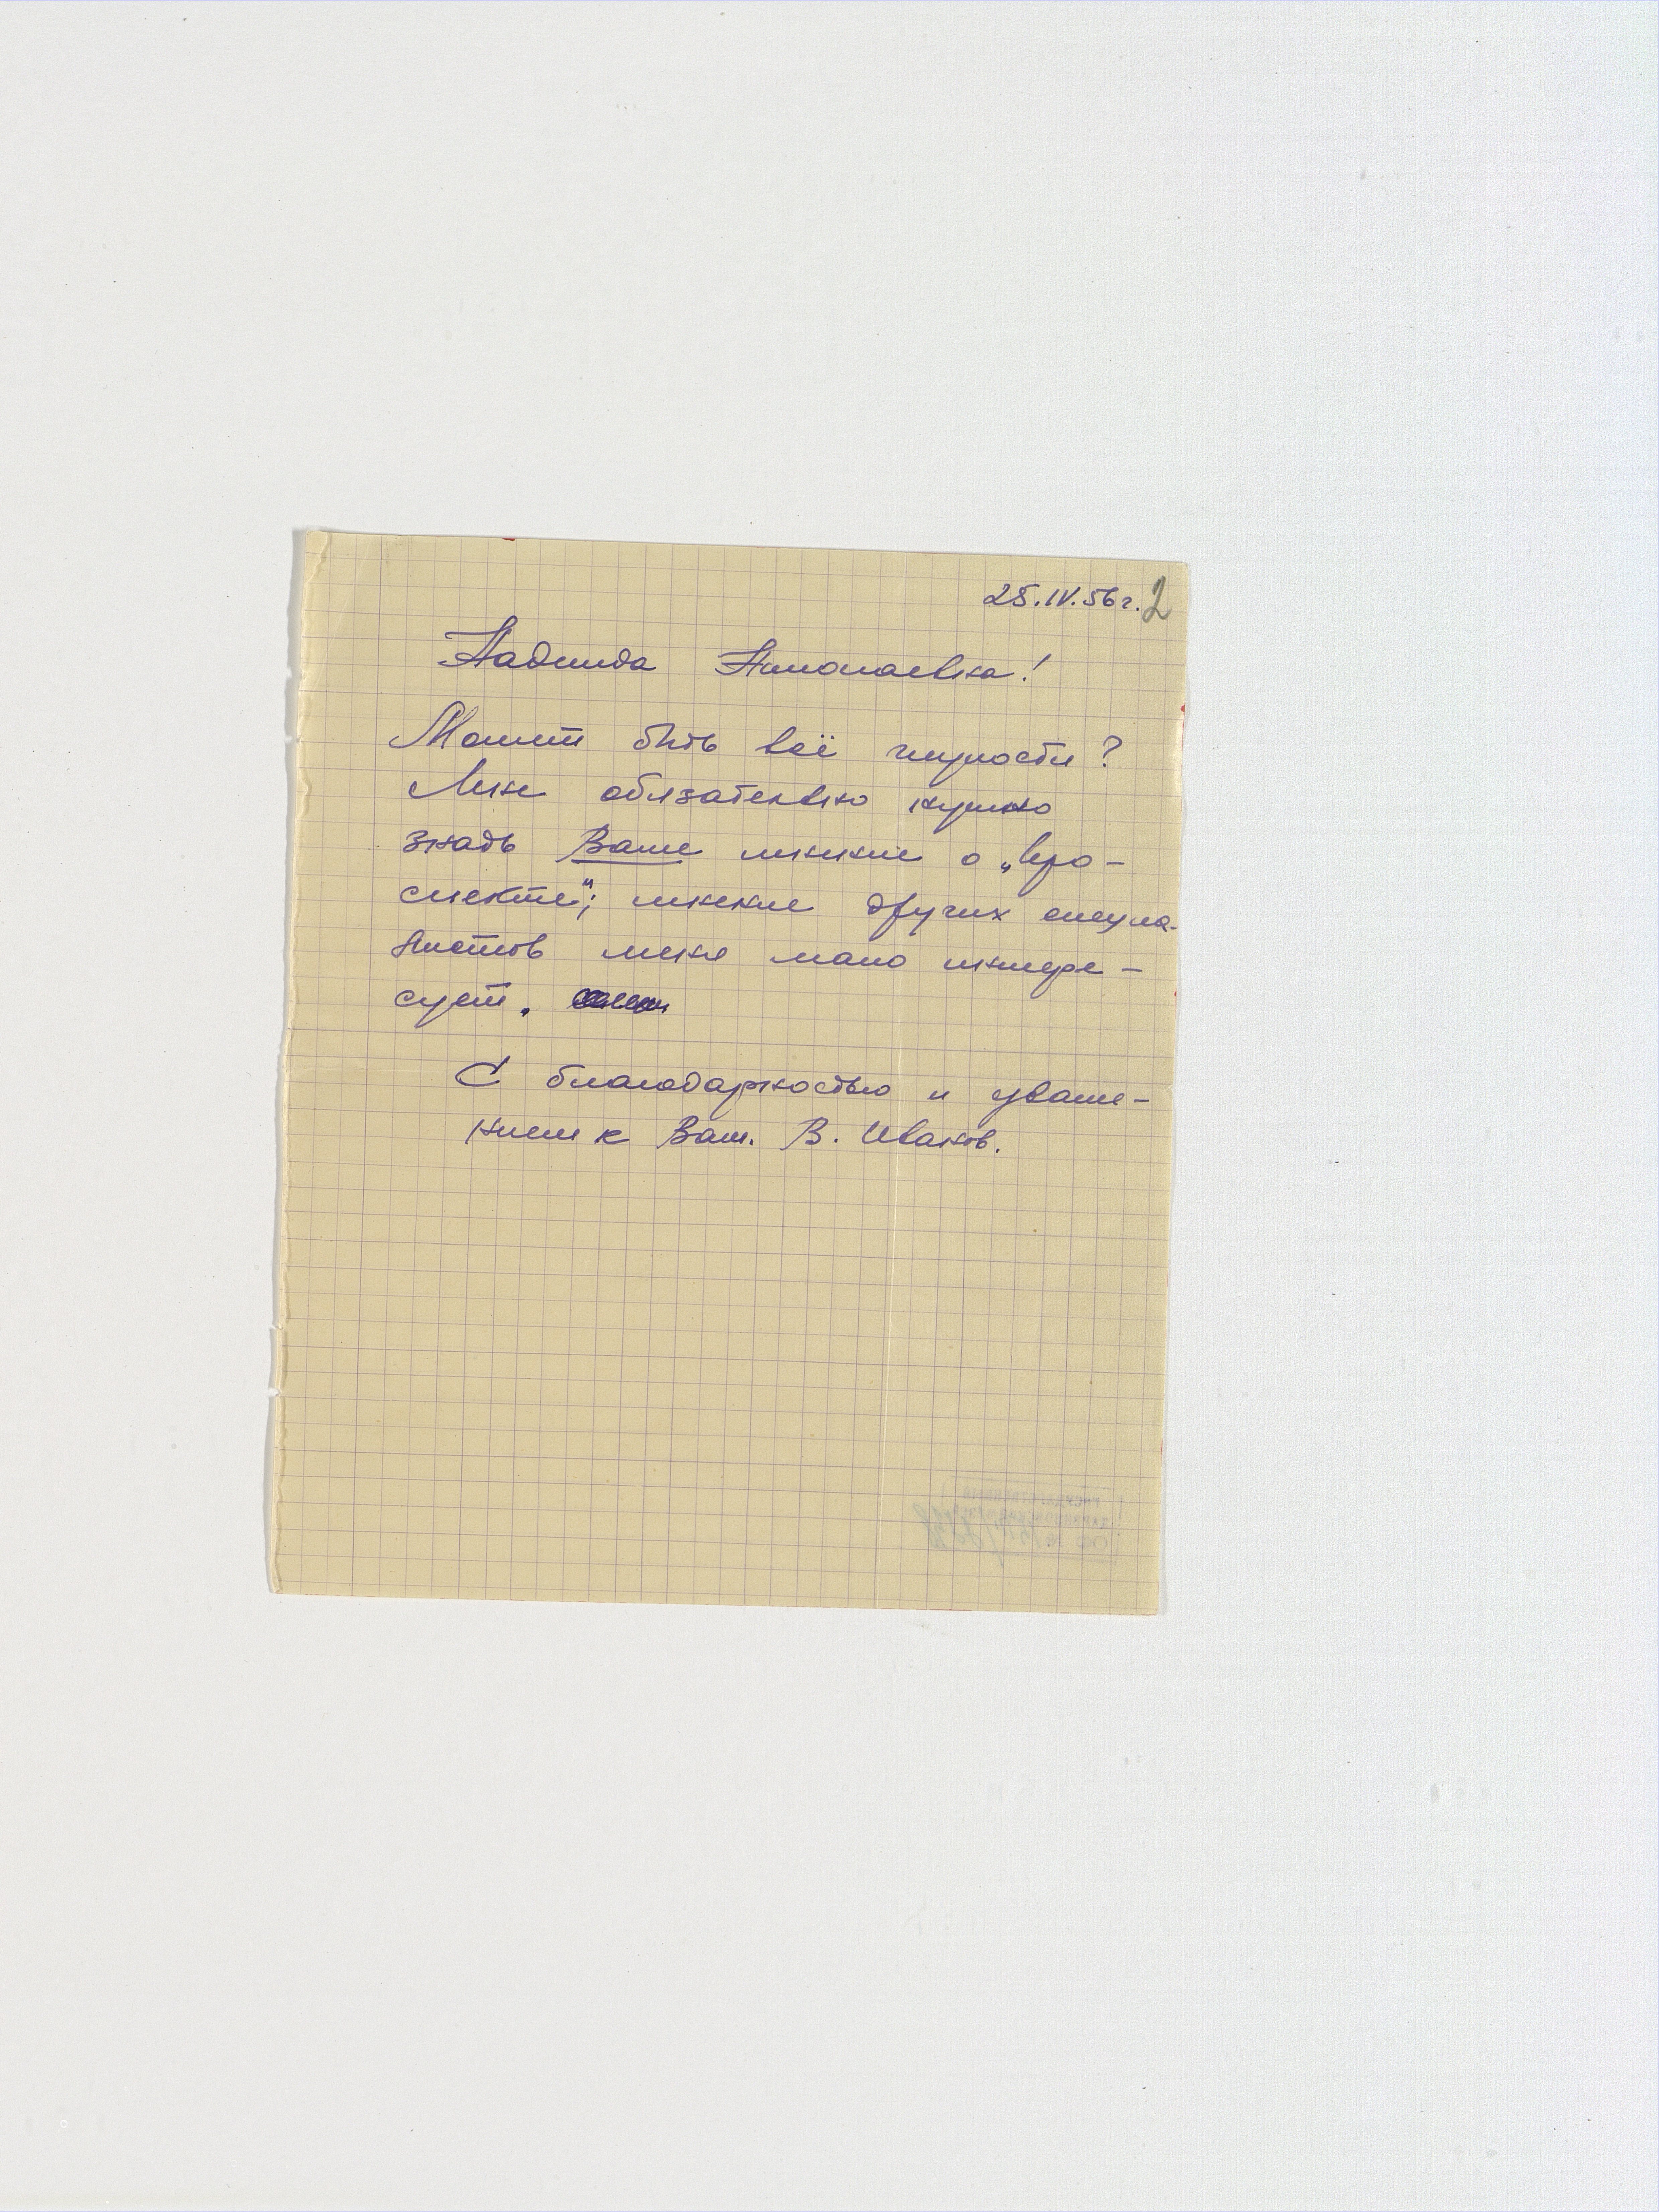 25.IV.56 г. 2
Надежда Николаевна!
Может быть всё глупости?
Мне обязательно нужно
знать Ваше мнение о „про-
спекте"; мнение других специа-
листов меня мало интере-
сует.
С благодарностью и уваже-
нием к Вам. В. Иванов.